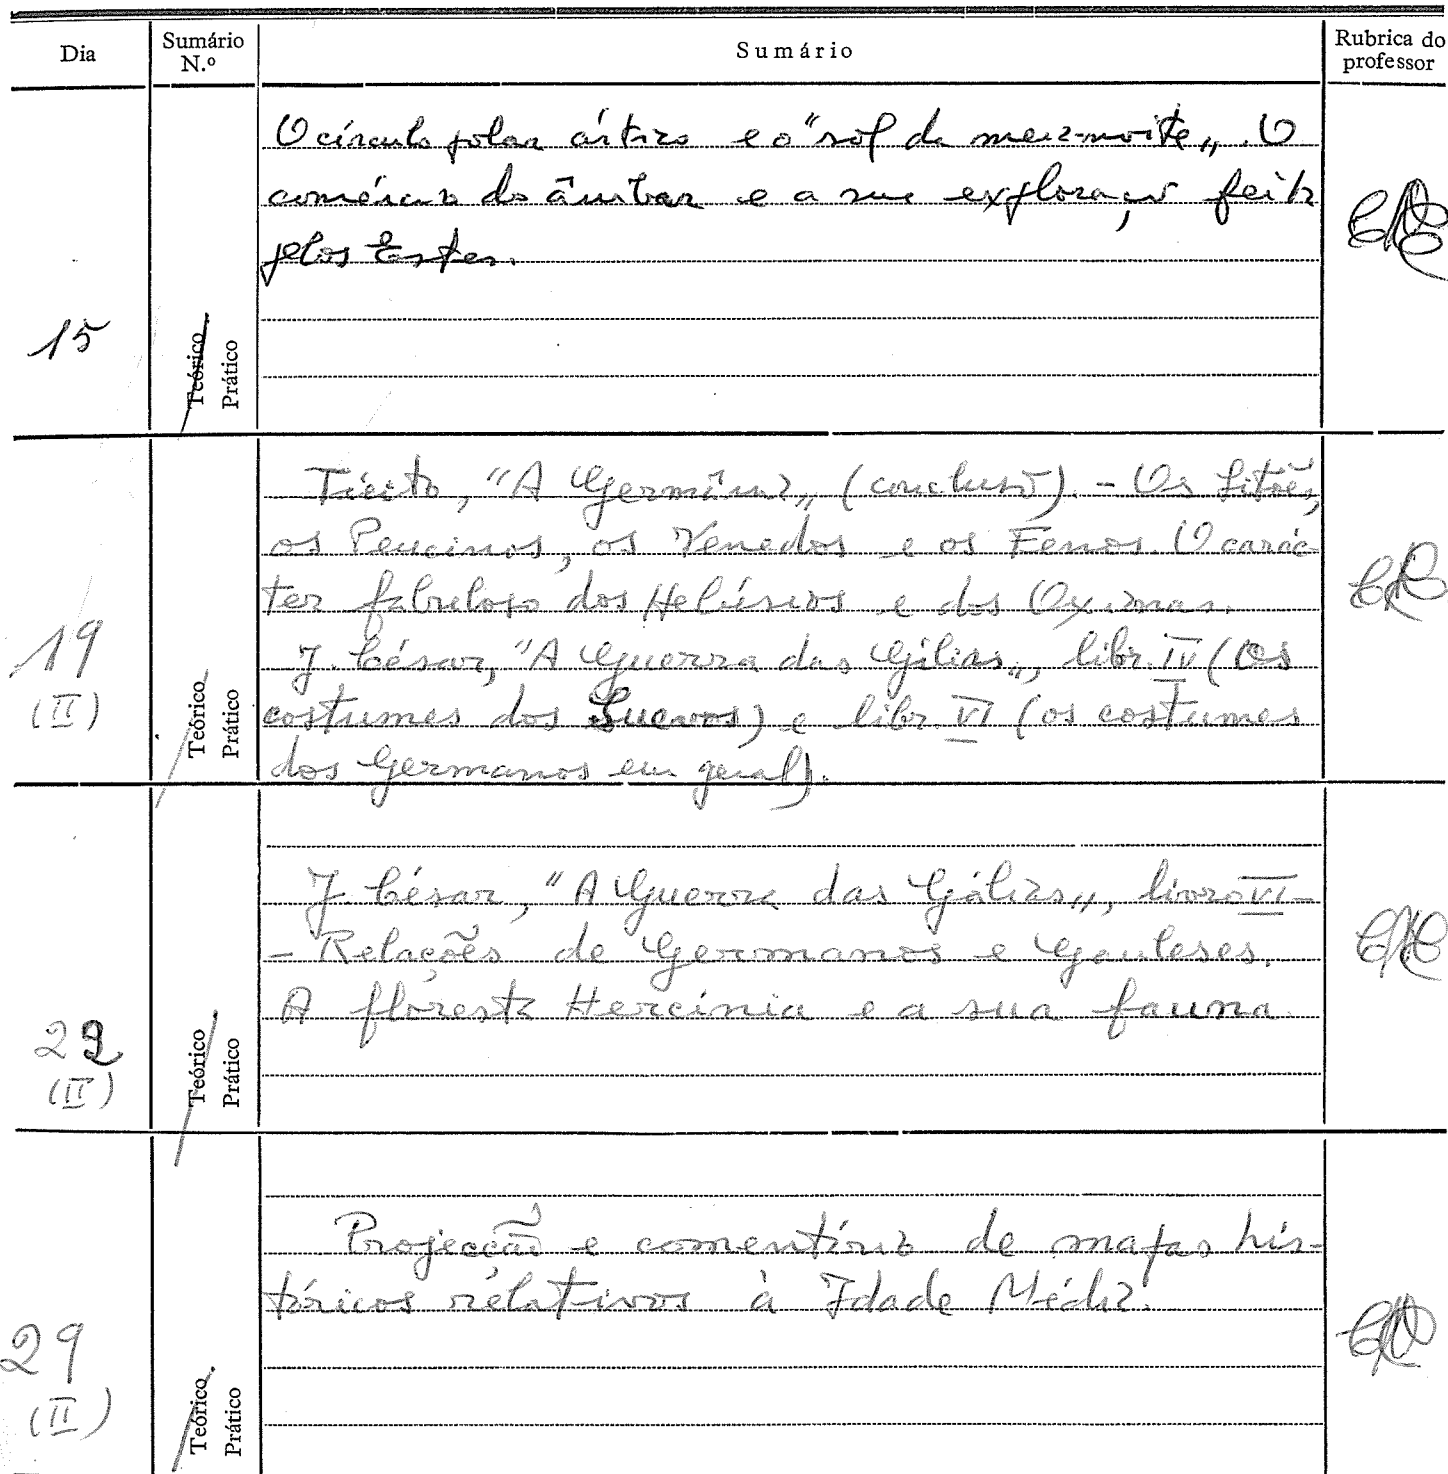 Dia
Sumário N.º
Sumário
Rubrica do professor
O círculo polar ártico e o "sol da meia-noite„. O
comércio do âmbar e a sua exploração feita
pelos Estes.
15
Teórico
Prático
Tácito, "A Germânia„ (conclusão). - Os Sitões,
os Peucinos, os Venedos e os Fenos. O carác-
ter fabuloso dos Helúsios e dos Oxionas.
J. César, "A Guerra das Gálias„, libr. IV (os
costumes dos Suevos) e libr. VI (os costumes
dos Germanos em geral).
19
(II)
Teórico
Prático
J. César, "A Guerra das Gálias„, livro VI -
- Relações de Germanos e Gauleses.
A floresta Hercínia e a sua fauna.
22
(II)
Teórico
Prático
Projecção e comentário de mapas his-
tóricos relativos à Idade Média.
29
(II)
Teórico
Prático